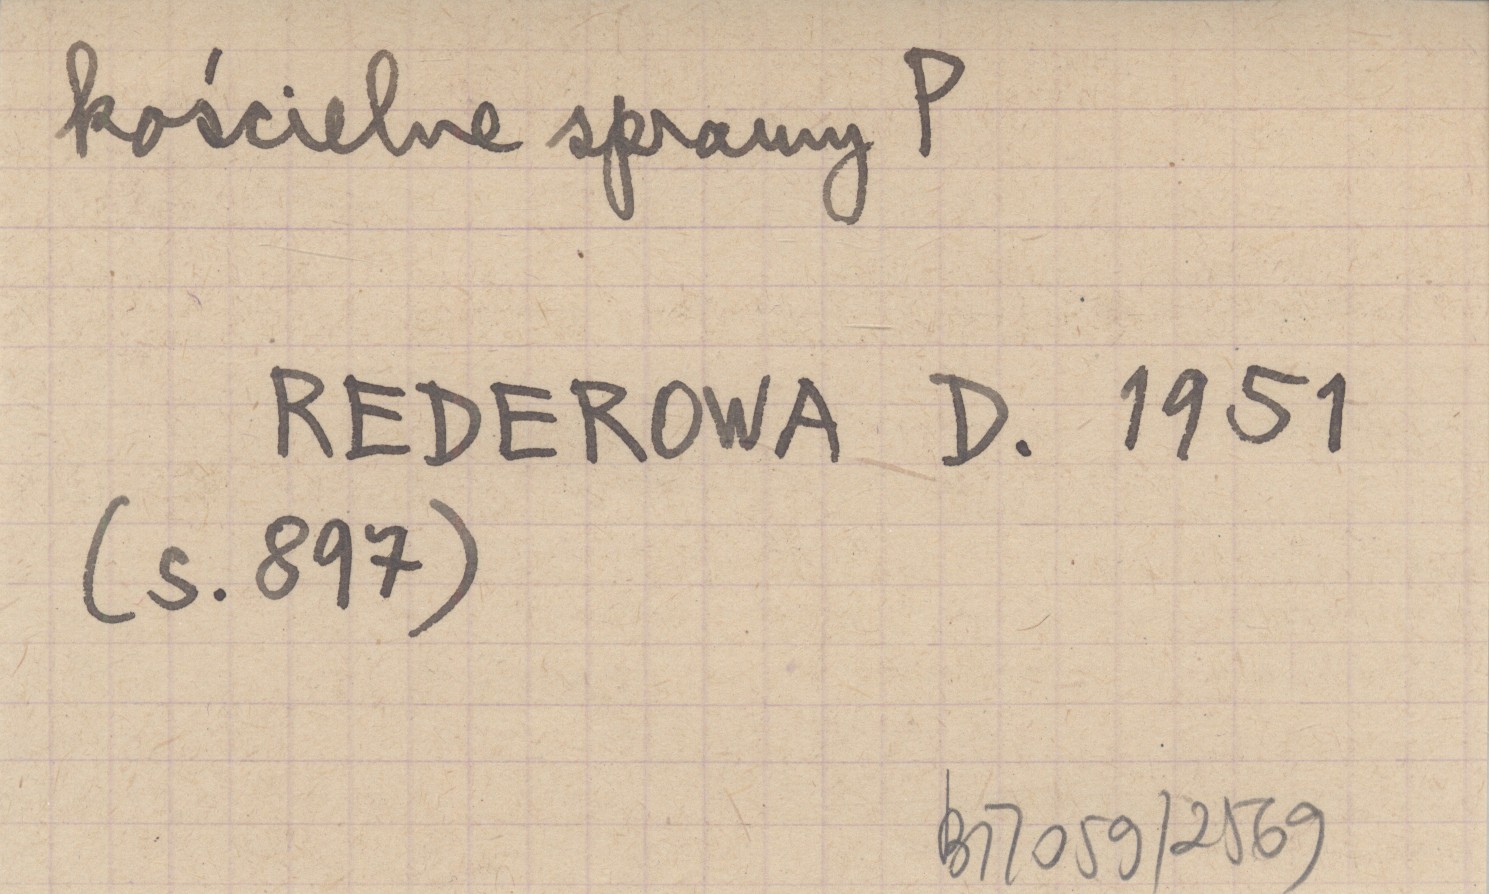 kościelne sprawy P
REDEROWA D. 1951
(s. 897)
059/2569